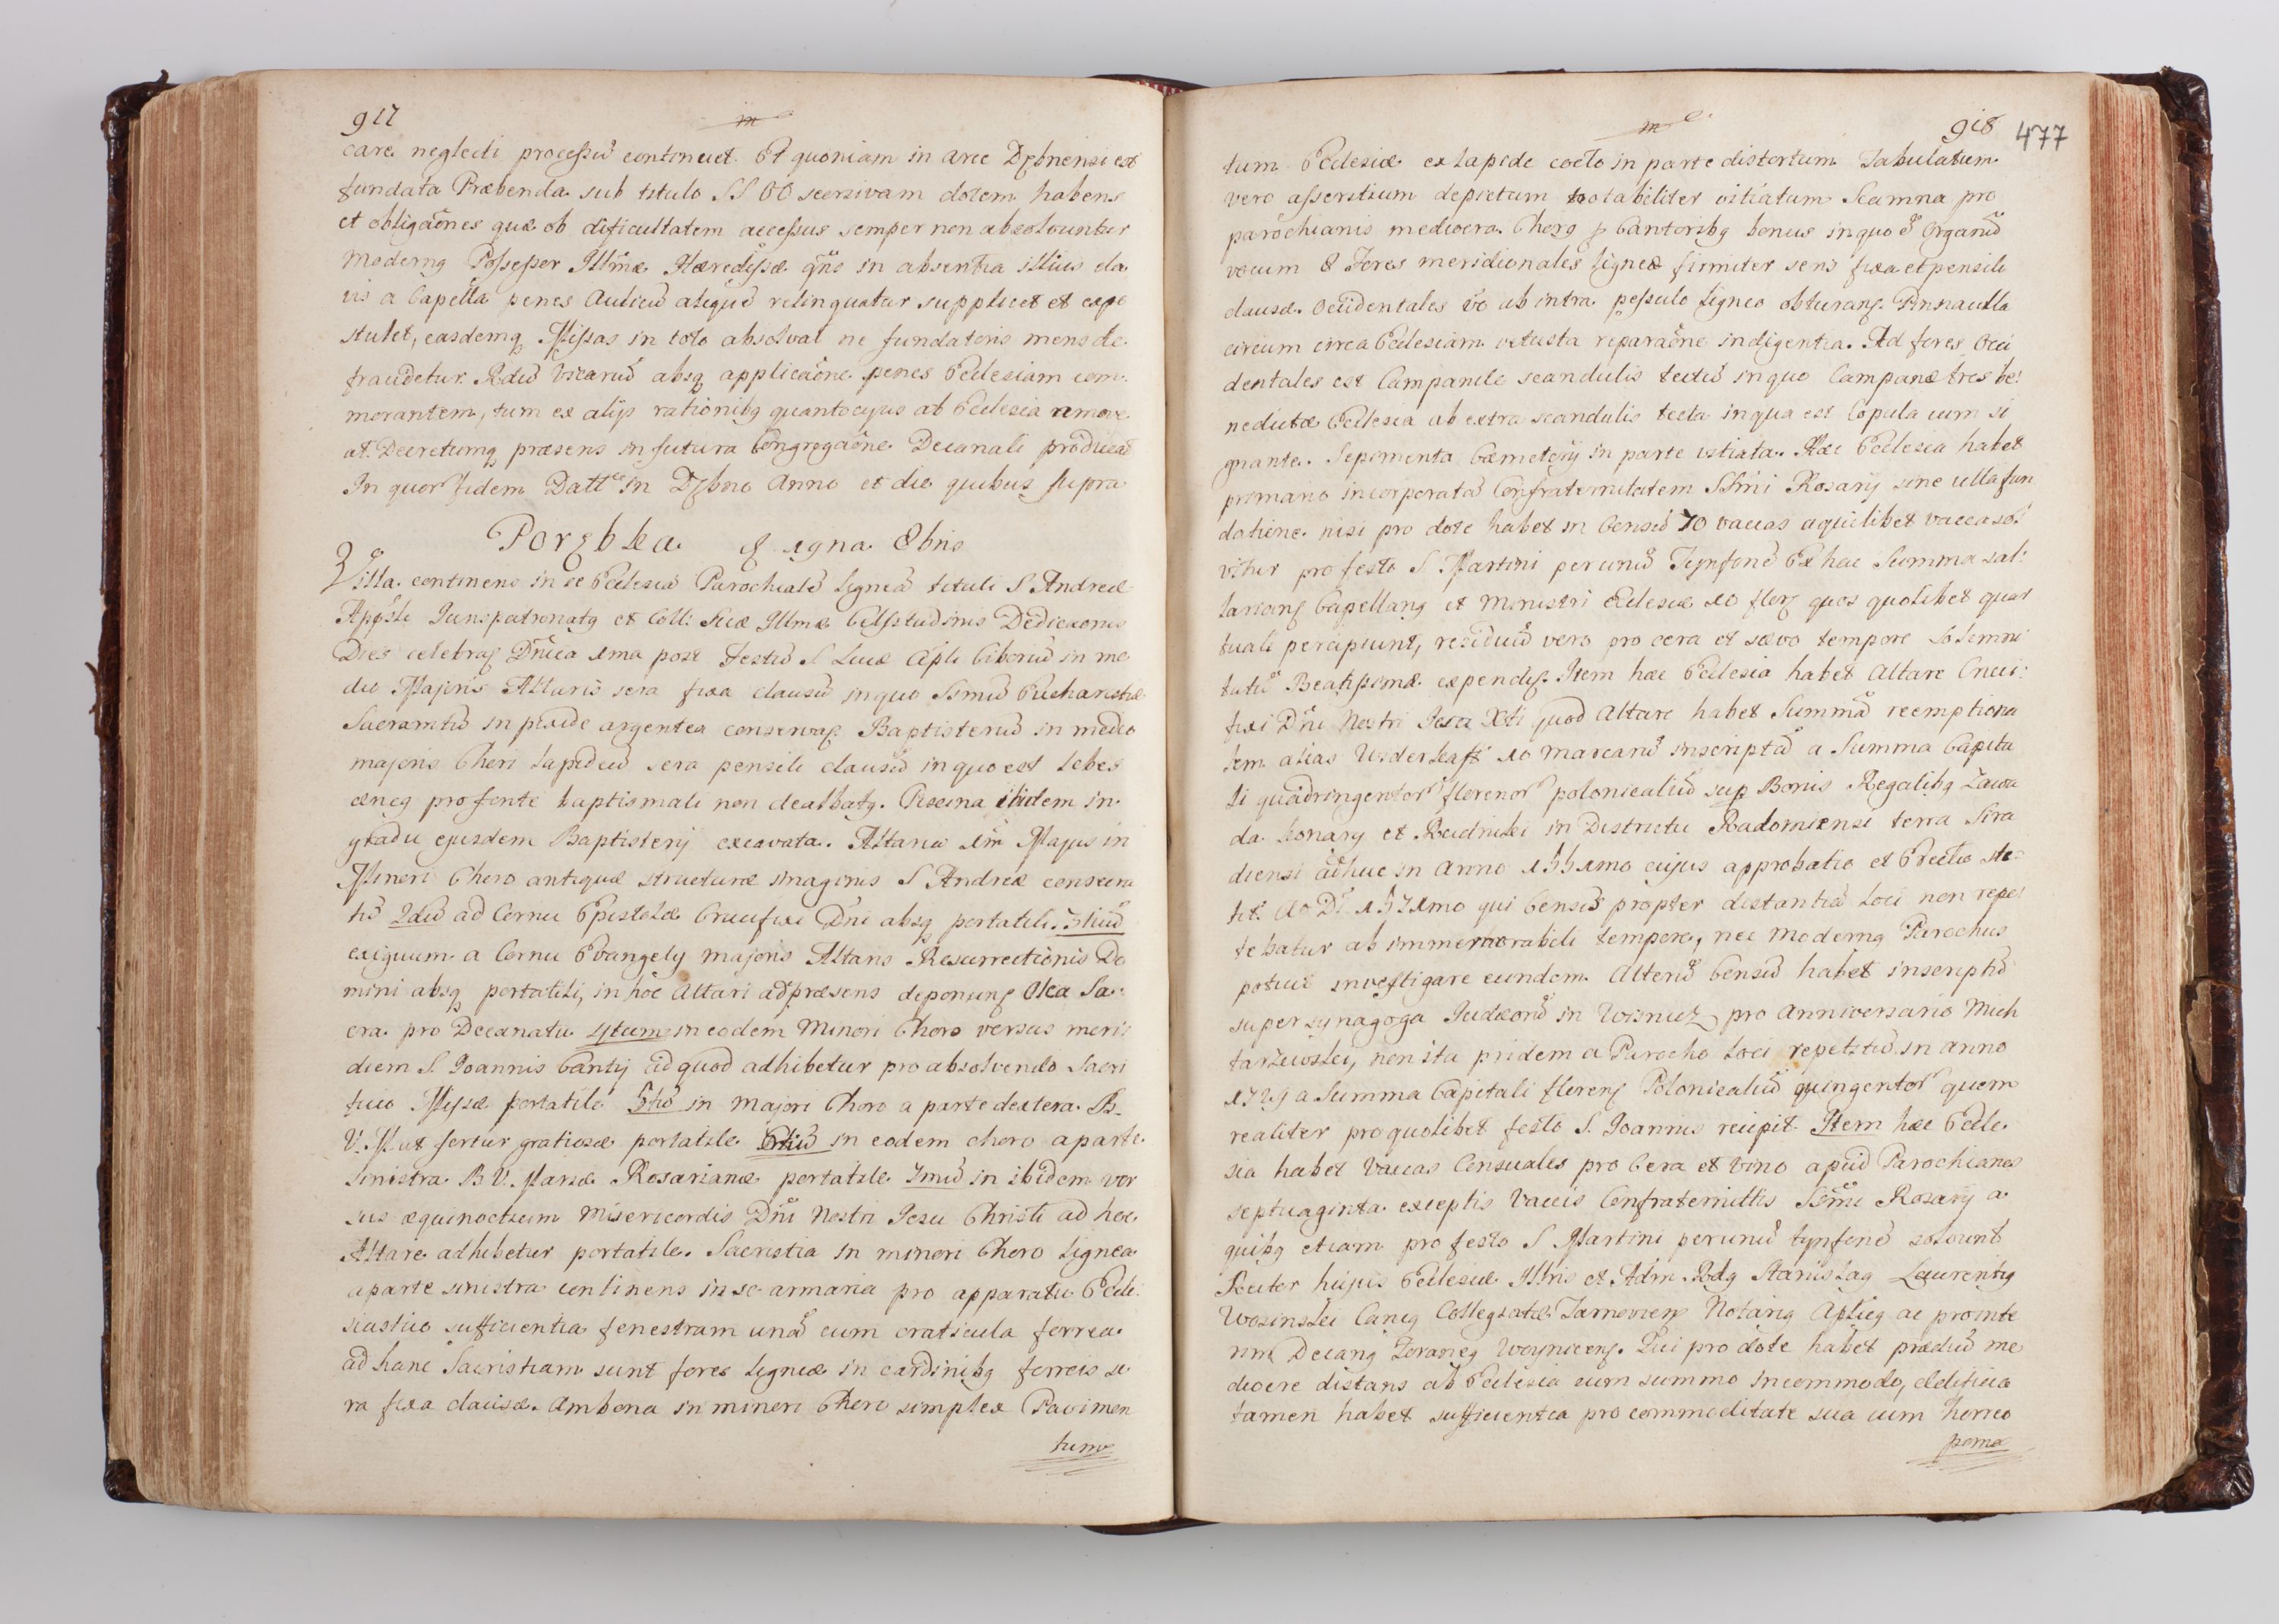 917
m
care neglecti processũ continuet. Et quoniam in arce Dębnensi est
fundata Præbenda sub titulo SS OO seorsivam dotem habens
et obligaõnes quæ ob dificultatem accessus semper non absolvuntur
Modernq Possessor Illmæ Hæredissæ qñs in absentia illius cla
vis a Capella penes Aulicũ aliquẽ relinquatur supplicet et expo
stulet, easdemq Missas in toto absolvat ne fundatoris mens de
fraudetur. Rdũ Vicariũ absq applicaõne penes Ecclesiam com
morantem, tum ex alijs rationibq quantocyus ab Ecclesia amove
at. Decretumq præsens in futura Congregaõne Decanali producat
In quor fidem Datt in Dębno Anno et die quibus supra
Porębka 8 1gna 8bris
Villa continens in se Ecclesiã Parochialẽ ligneã tituli S Andreæ
Appsli Jurispatronatq et Coll: Suæ Illmæ Celsitudinis Dedicaonis
Dies celebraʒ Dñica 1ma post Festũ S Lucæ Apli Ciboriũ in me
dio Majoris Altaris sera fixa clausũ in quo Ssmũ Eucharistiæ
Sacramtũ in pixide argentea conservaʒ Baptisteriũ in medio
majoris Chori lapideũ sera pensili clausũ in quo est lebes
æneq pro fonte baptismali non dealbatq. Piscina ibidem in
gradu ejusdem Baptisterij excavata. Altaria 1m Majus in
Minori Choro antiquæ structuræ imaginis S Andreæ consecra
tũ 2dũ ad Cornu Epistolæ Crucifixi Dñi absq portatili. 3tiũ
exiguum a Cornu Evangely majoris Altaris Resurrectionis Do
mini absq portatili, in hoc Altari ad præsens deponunʒ Olea Sa
cra pro Decanatu 4tum in eodem Minori Choro versus meri
diem S. Joannis Cantij ad quod adhibetur pro absolvendo Sacri
ficio Missæ portatile 5tũ in majori Choro a parte dextera B.
V. M ut fertur gratiosæ portatile 6tũ in eodem choro a parte
sinistra B V. Mariæ Rosarianæ portatile 7mũ in ibidem ver
sus æquinoctium Misericordis Dñi Nostri Jesu Christi ad hoc
Altare adhibetur portatile. Sacristia in minori Choro lignea
a parte sinistra continens in se armaria pro apparatu Eccle
siastico sufficientia fenestram unã cum craticula ferrea
ad hanc Sacristiam sunt fores ligneæ in cardinibq ferreis se
ra fixa clausæ. Ambona in minori Choro simplex Pavimen
tum
m
918
477
tum Ecclesiæ ex lapide cocto in parte distortum Tabulatum
vero asseritium depictum notabiliter vitiatum Scamna pro
parochianis mediocra. Chorq p Cantoribq bonus in quo ẽ Organũ
vocum 8 Fores meridionales ligneæ firmiter sera fixa et pensili
clausæ. Occidentales vo ab intra pessulo ligneo obturanʒ. Pinnaculla
circum circa Ecclesiam vetusta reparaõne indigentia. Ad fores Occi
dentales est Campanile scandulis tectũ in quo Campanæ tres be
nedictæ Ecclesia ab extra scandulis tecta in qua est Copula cum si
gnante. Sepimenta Cæmeterij in parte vitiata. Hæc Ecclesia habet
primario incorporatã Confraternitatem SSmi Rosarij sine ulla fun
datione nisi pro dote habet in Censũ 70 vaccas a qualibet vacca sol
vitur pro festo S. Martini per unũ Tynfonẽ Ex hac Summa sal
larianʒ Capellanq et Ministri Ecclesiæ 10 flor quos quolibet quar
tuali percipiunt, residuũ vero pro cera et sævo tempore Solemni
tatũ Beatissimæ expendiʒ. Item hæc Ecclesia habet Altare Cruci
fixi Dñi Nostri Jesu Xti quod Altare habet Summã reemptiona
lem alias Widerkaff 10 marcarũ inscriptã a Summa Capita
li quadringentor florenor polonicaliũ sup Bonis Regalibq Zawa
da Konary et Rudniki in Districtu Radomiensi terra Sira
diensi adhuc in Anno 1551mo cujus approbatio et Erectio ste
tit Ao Di 1571mo qui Censũs propter distantiã loci non repe
tebatur ab immemorabili tempore, nec Modernq Parochus
potuit investigare eundem. Alterũ Censũ habet inscriptũ
super synagoga Judæorũ in Wisnicz pro Anniversario Mich
tarzewski, non ita pridem a Parocho loci repetitũ in anno
1725 a Summa Capitali florenʒ Polonicaliũ quingentor quem
realiter pro quolibet festo S. Joannis recipit. Item hæc Eccle
sia habet Vaccas Censuales pro Cera et Vino apud Parochianos
septuaginta exceptis Vaccis Confraternittis Ssmi Rosarij a
quibq etiam pro festo S Martini per unũ tynfonẽ solvunt
Rector hujus Ecclesiæ Illris et Adm. Rdq Stanislaq Laurentiq
Wosinski Canq Collegiatæ Tarnoviens Notariq Aplicq ac pro inte
rim Decanq Foraneq Woynicens. Qui pro dote habet prædiũ me
diocre distans ab Ecclesia cum summo incommodo, Ædificia
tamen habet sufficientia pro commoditate sua cum horreo
poma